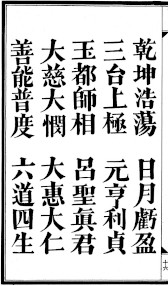 乾坤浩蕩　日月虧盈
三台上極　元亨利貞
玉都師相　呂聖眞君
大慈大憫　大惠大仁
善能普度　六道四生